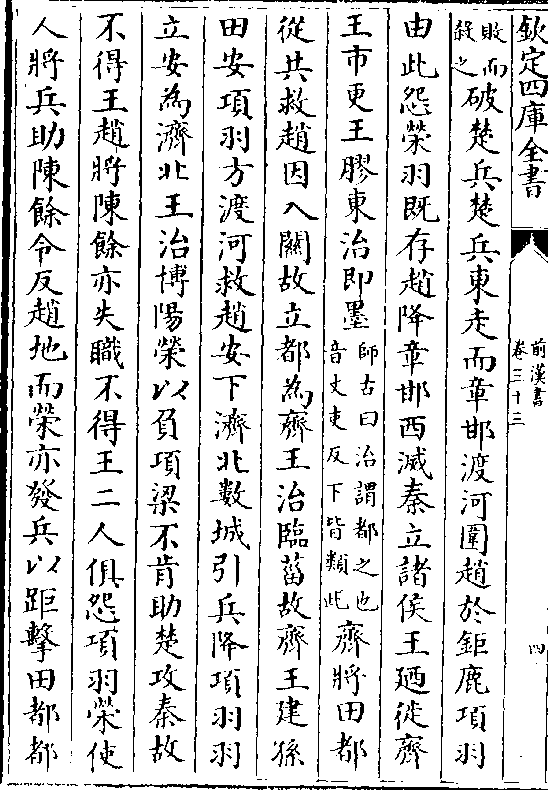 欽定四庫全書
前漢書
卷三十三
四
敗而
殺之
破楚兵楚兵東走而章邯渡河圍趙於鉅鹿項羽
由此怨榮羽既存趙降章邯西滅秦立諸侯王廼徙齊
王市更王膠東治即墨
師古曰治謂都之也
音丈吏反下皆類此
齊將田都
從共救趙因入關故立都為齊王治臨菑故齊王建孫
田安項羽方渡河救趙安下濟北數城引兵降項羽羽
立安為濟北王治博陽榮以負項梁不肯助楚攻秦故
不得王趙將陳餘亦失職不得王二人俱怨項羽榮使
人將兵助陳餘令反趙地而榮亦發兵以距擊田都都